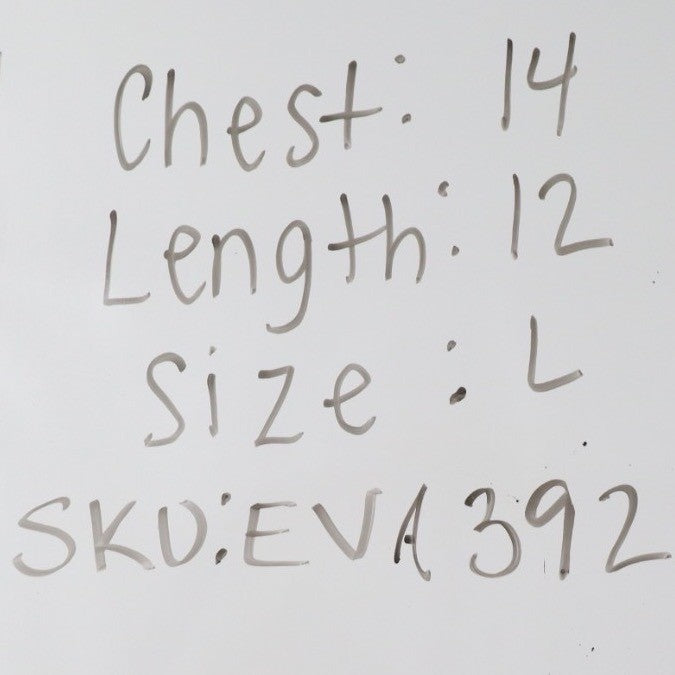 Chest: 14
Length: 12
Size: L
SKU: EVA 392